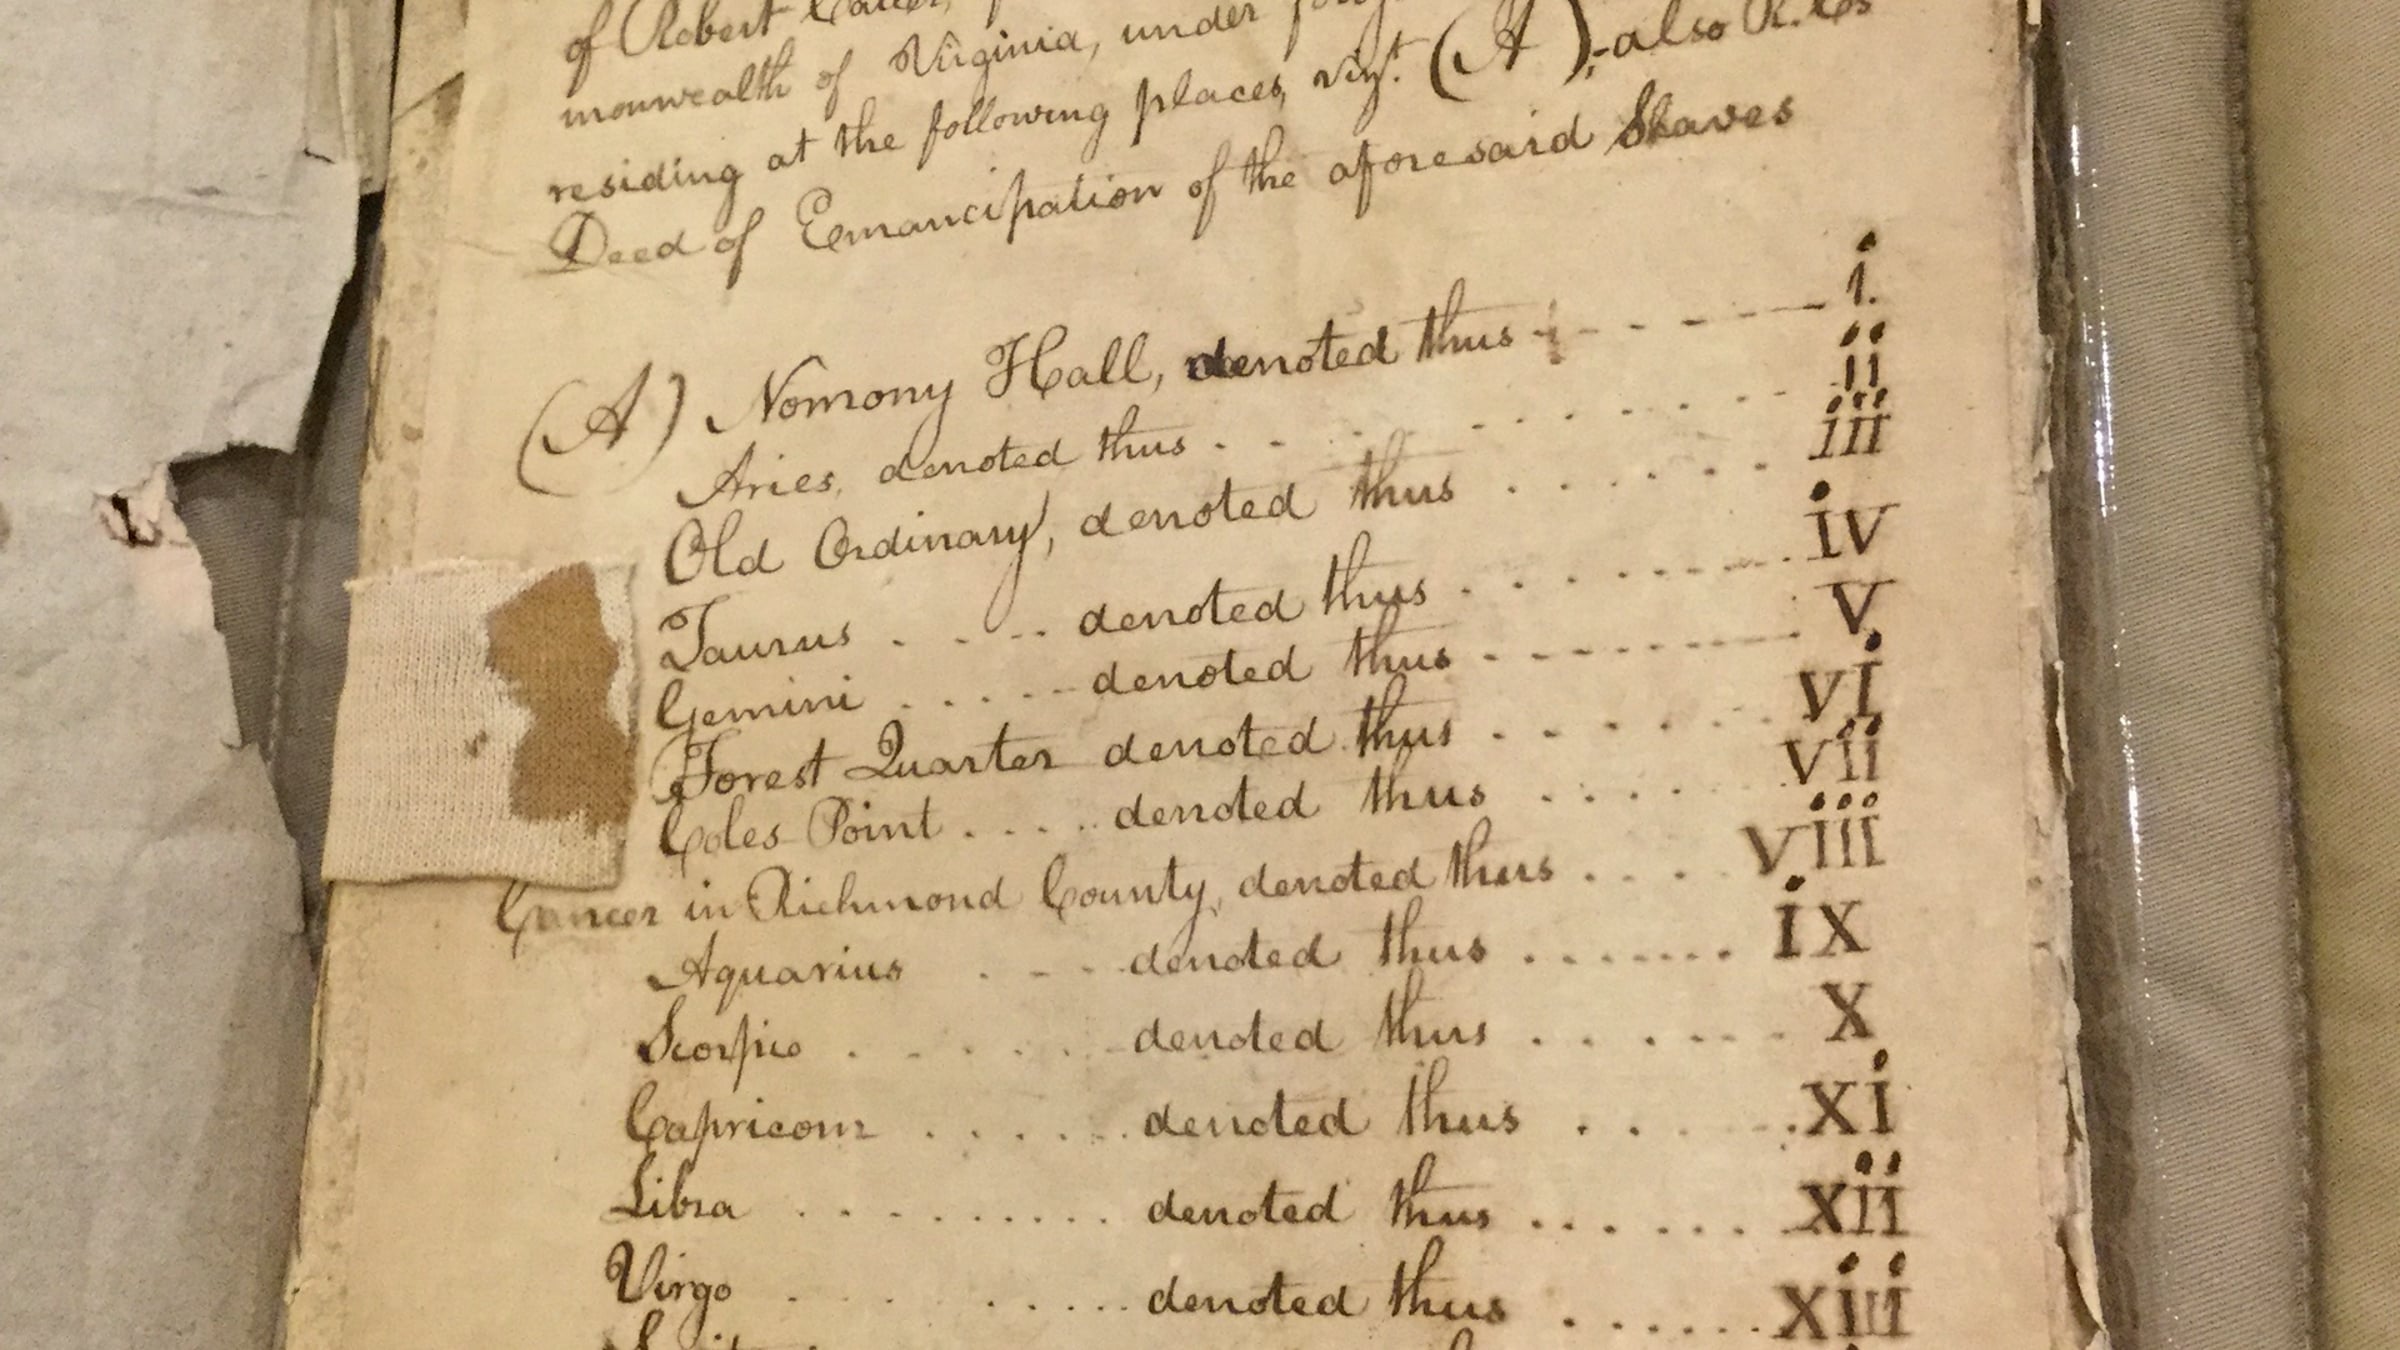 of Robert Carter,
monwealth of Virginia, under
residing at the following places, vizt. (A), also Rules
Deed of Emancipation of the aforesaid Slaves
(A) Nomony Hall, denoted thus - - - - - i.
Aries, denoted thus . . . . . . . . ii
Old Ordinary, denoted thus . . . . . . iii
Taurus . . . . denoted thus . . . . . . . . iv
Gemini . . . . . denoted thus - - - - - - - - V
Forest Quarter denoted thus . . . . . . vi
Coles Point . . . . . denoted thus . . . . . vii
Cancer in Richmond County, denoted thus . . . . viii
Aquarius . - - . denoted thus . . . . . . . ix
Scorpio . . . . . . denoted thus . . . . . . X
Capricorn . . . . . . denoted thus . . . . . Xi
Libra . . . . . . . . . denoted thus . . . . . . . Xii
Virgo . . . . . . . . denoted thus . . . . . . . Xiii